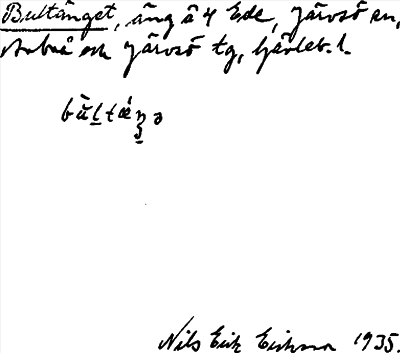 Bultänget, äng å 4 Ede, Järvsö sn,
Arbrå och Järvsö tg, Gävleb. l.
bùltǽŋə
Nils Erik Eriksson 1935.